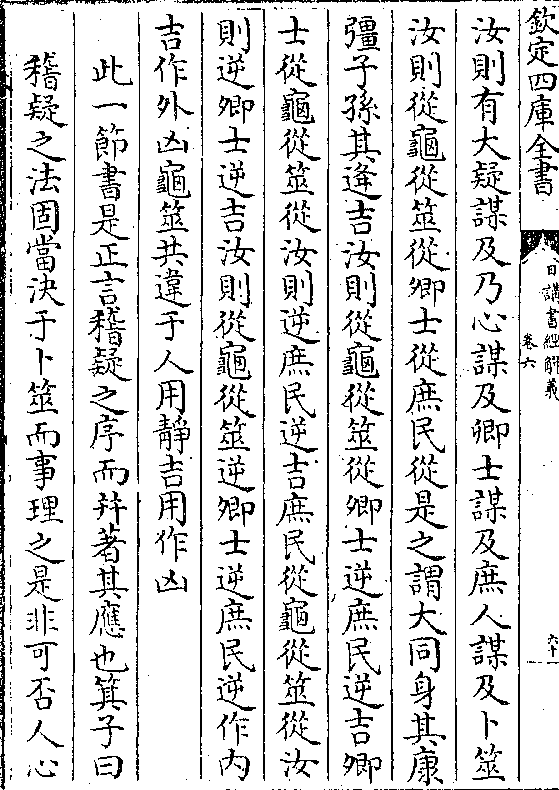 欽定四庫全書
日講書經解義
卷六
六十
汝則有大疑謀及乃心謀及卿士謀及庶人謀及卜筮
汝則從龜從筮從卿士從庶民從是之謂大同身其康
彊子孫其逢吉汝則從龜從筮從卿士逆庶民逆吉卿
士從龜從筮從汝則逆庶民逆吉庶民從龜從筮從汝
則逆卿士逆吉汝則從龜從筮逆卿士逆庶民逆作内
吉作外凶龜筮共違于人用靜吉用作凶
此一節書是正言稽疑之序而幷著其應也箕子曰
稽疑之法固當決于卜筮而事理之是非可否人心